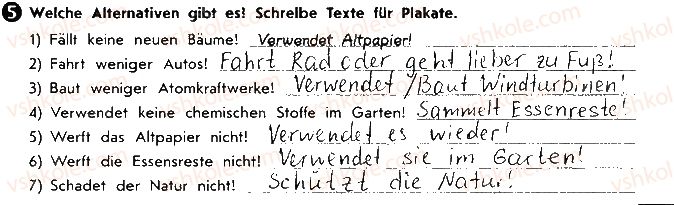 5 Welche Alternativen gibt es? Schreibe Texte für Plakate.
1) Fällt keine neuen Bäume! Verwendet Altpapier!
2) Fahrt weniger Autos! Fahrt Rad oder geht lieber zu Fuß!
3) Baut weniger Atomkraftwerke! Verwendet /Baut Windturbinen!
4) Verwendet keine chemischen Stoffe im Garten! Sammelt Essenreste!
5) Werft das Altpapier nicht! Verwendet es wieder!
6) Werft die Essensreste nicht! Verwendet sie im Garten!
7) Schadet der Natur nicht! Schützt die Natur!